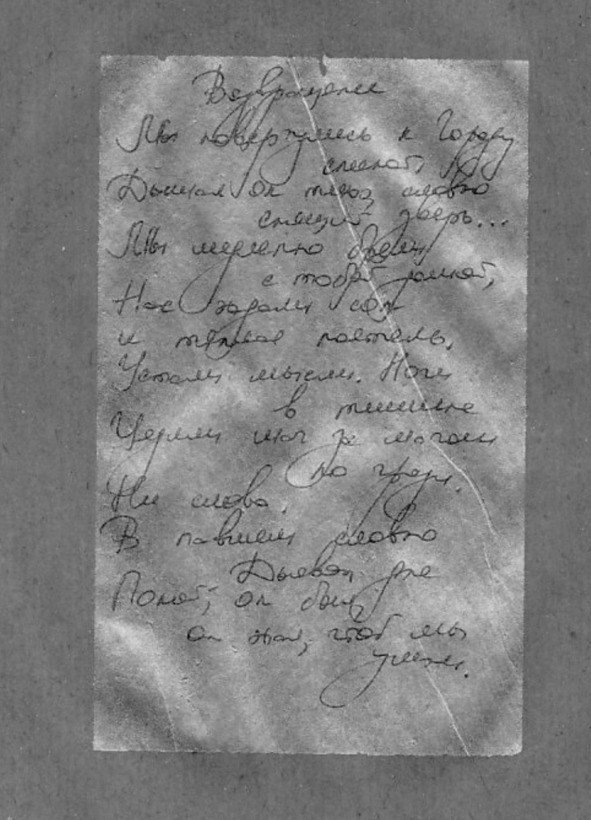 Возвращение
Мы повернулись к Городу
спиной,
Дышал он тихо, словно
спящий зверь...
Мы медленно брели
с тобой домой,
Нас ждали сон
и тёплая постель.
Устали мысли. Ноги
в тишине
Чедили шаг за шагом
по гряз.
Ни слова.
В павшем словно
Домой, он был,
он жал, чтоб мы
ушли.